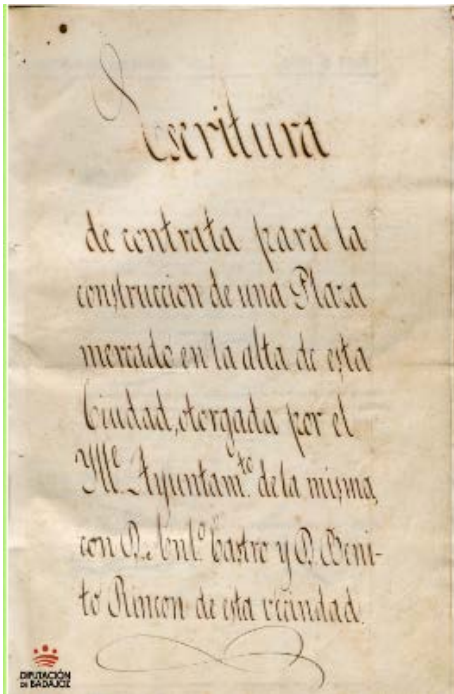 Escritura
de contrata para la
construccion de una Plaza
mercado en la alta de esta
Ciudad, otorgada por el
Ylle. Ayuntam.to de la misma,
con D. Ant.o Castro y D. Beni-
to Rincon de esta vecindad.
DIPUTACIÓN
DE BADAJOZ